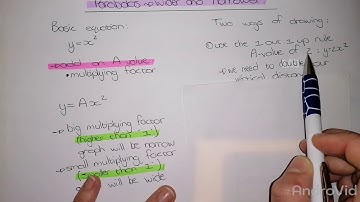 Parabolas - wider and narrower
Basic equation:
y = x²
→ add an A value
• multiplying factor
y = Ax²
• big multiplying factor
(bigger than 1)
graph will be narrow
• small multiplying factor
(smaller than 1)
will be wide
Two ways of drawing:
① use the 1 out 1 up rule
A-value of 2 : y=2x²
we need to double our
vertical distan
AndroVid